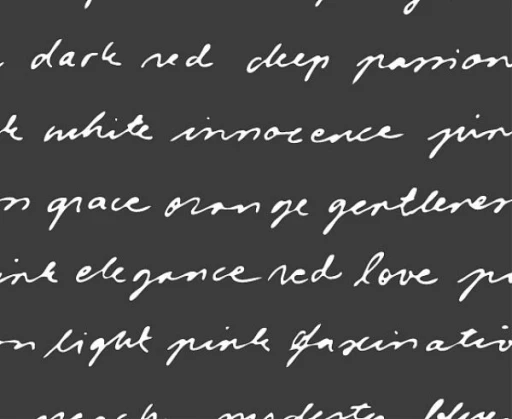 dark red deep passion
white innocence pin
grace orange gentlenes
ink elegance red love p
light pink fascinatio
peach modesty blue